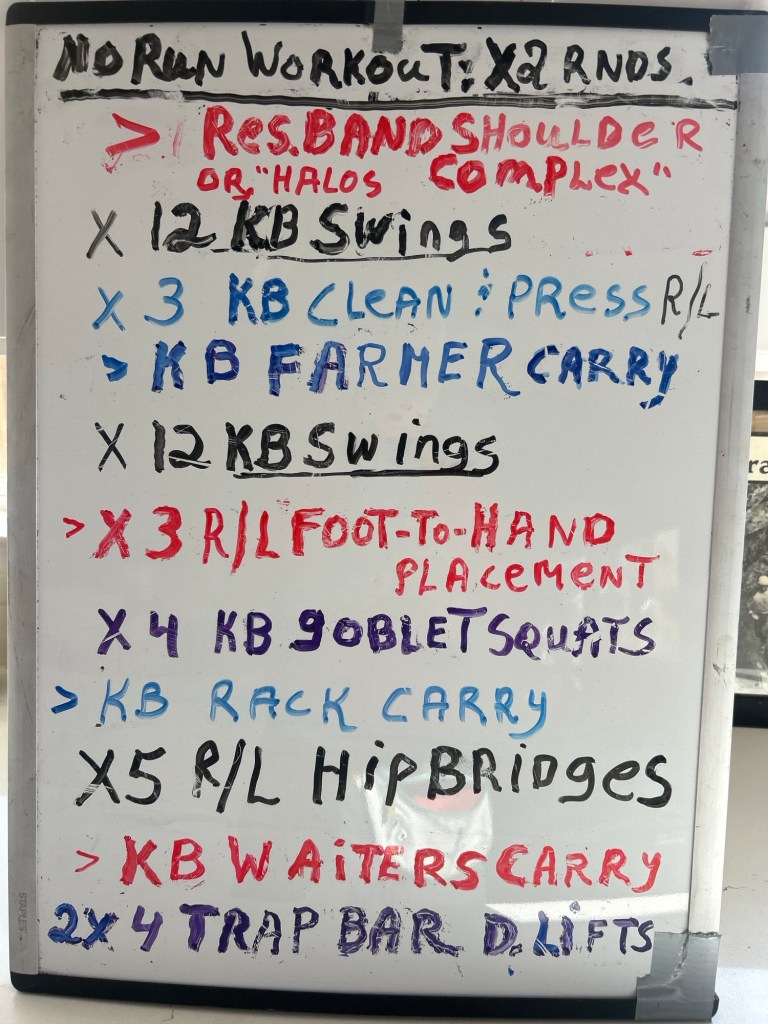 NO RUN WORKOUT: X2 RNDS.
> RES. BAND SHOULDER
OR, "HALOS COMPLEX"
X 12 KB SWings
X 3 KB CLEAN & PRESS R/L
> KB FARMER CARRY
X 12 KB SWings
> X 3 R/L FOOT-TO-HAND
PLACEMENT
X 4 KB gOBLET SQUATS
> KB RACK CARRY
X5 R/L HipBRIDges
> KB WAiTERS CARRY
2X 4 TRAP BAR D. LiFTS
STAPLES
ra